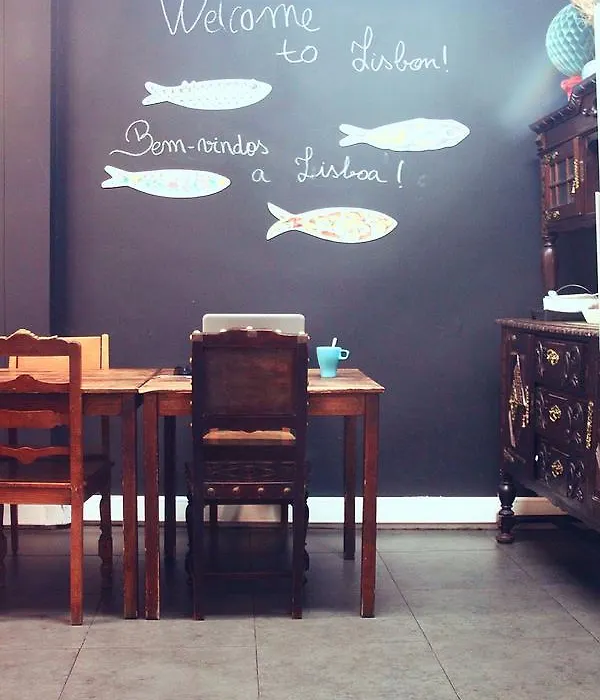 Welcome
to Lisbon!
Bem-vindos
a Lisboa!